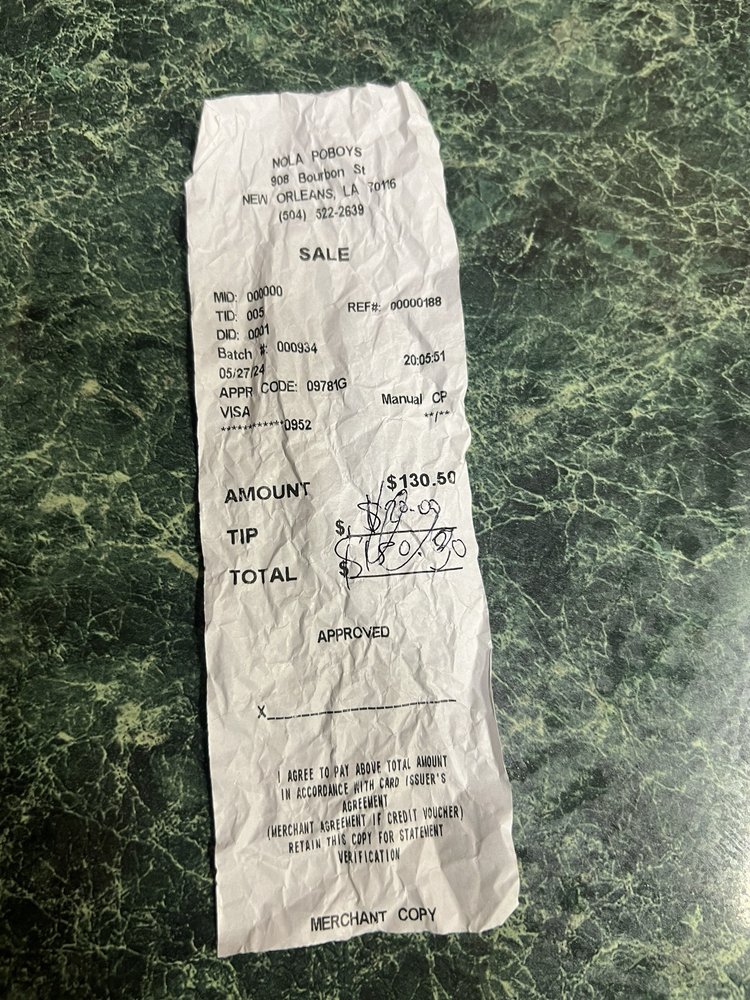 NOLA POBOYS
908 Bourbon St
NEW ORLEANS, LA 70116
(504) 522-2639
SALE
MID: 000000
TID: 005 REF#: 00000188
DID: 0001
Batch #: 000934
05/27/24 20:05:51
APPR CODE: 09781G
VISA Manual CP
***********0952 **/**
AMOUNT $130.50
TIP $
TOTAL $
APPROVED
X
I AGREE TO PAY ABOVE TOTAL AMOUNT
IN ACCORDANCE WITH CARD ISSUER'S
AGREEMENT
(MERCHANT AGREEMENT IF CREDIT VOUCHER)
RETAIN THIS COPY FOR STATEMENT
VERIFICATION
MERCHANT COPY